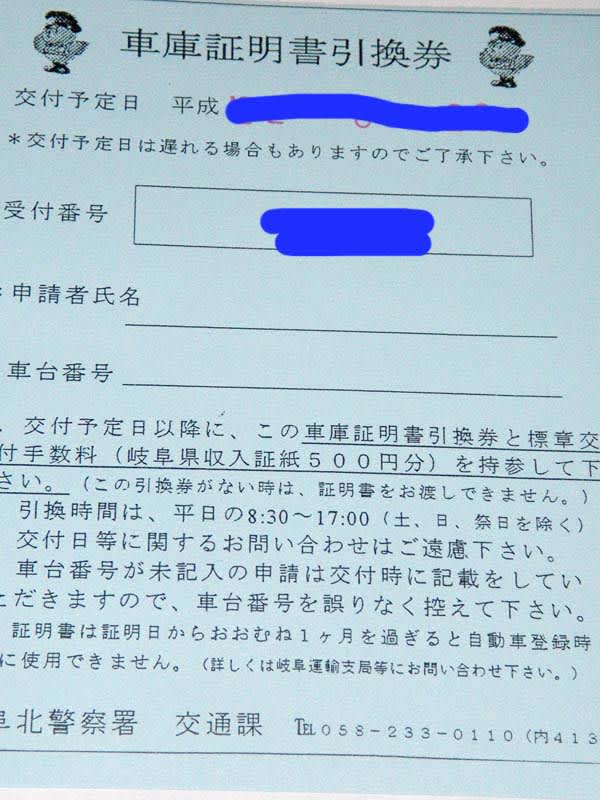 車庫証明書引換券
交付予定日 平成
＊交付予定日は遅れる場合もありますのでご了承下さい。
受付番号
申請者氏名
車台番号
交付予定日以降に、この車庫証明書引換券と標章交
付手数料（岐阜県収入証紙５００円分）を持参して下
さい。（この引換券がない時は、証明書をお渡しできません。）
引換時間は、平日の8:30～17:00（土、日、祭日を除く）
交付日等に関するお問い合わせはご遠慮下さい。
車台番号が未記入の申請は交付時に記載をしてい
ただきますので、車台番号を誤りなく控えて下さい。
証明書は証明日からおおむね１ヶ月を過ぎると自動車登録時
に使用できません。（詳しくは岐阜運輸支局等にお問い合わせ下さい。）
阜北警察署 交通課 ℡０５８－２３３－０１１０（内４１３